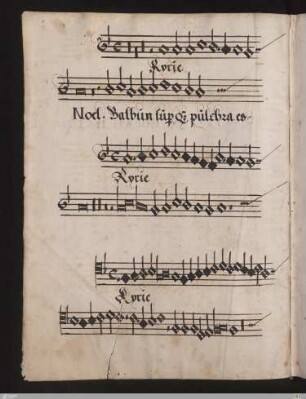 Kyrie
Noel. Balduin sup Q pulchra es
Kyrie
Kyrie